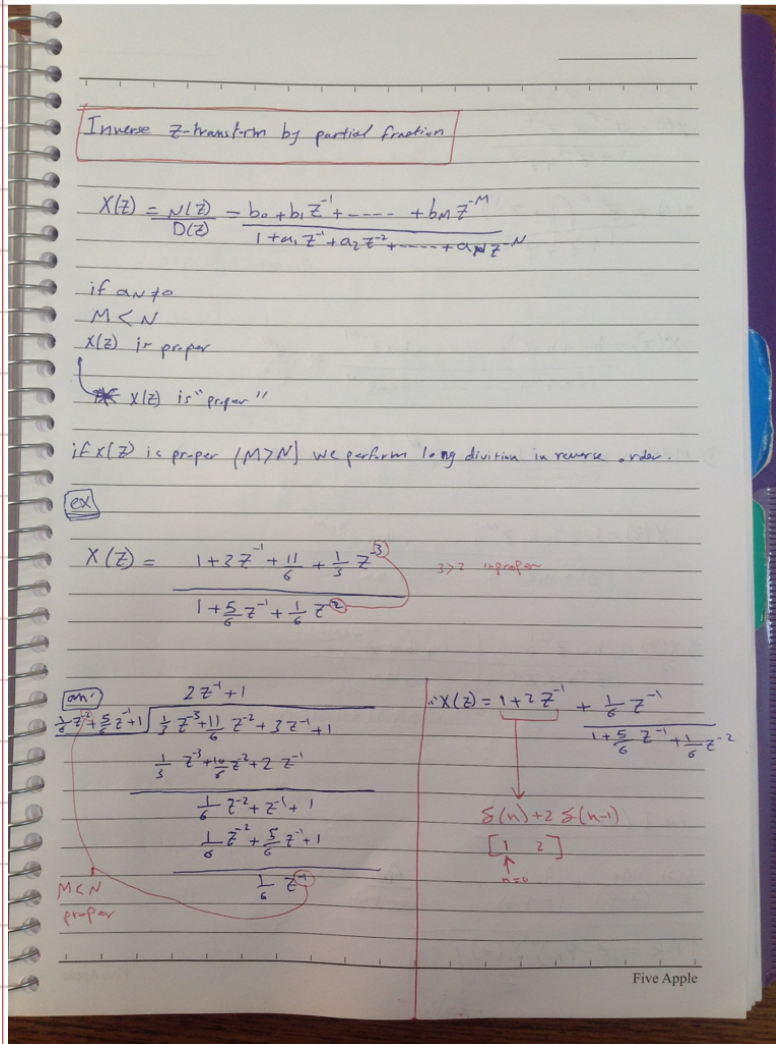 Inverse z-transform by partial fraction
X(z) = N(z)/D(z) = (b₀ + b₁z⁻¹ + ----- + b_M z^-M)/(1 + a₁z⁻¹ + a₂z⁻² + ------ + a_N z^-N)
if a_N ≠ 0
M < N
X(z) is proper
X(z) is "proper"
if X(z) is proper (M>N) we perform long division in reverse order.
ex
X(z) = (1 + 3z⁻¹ + 11/6 + 1/3 z⁻³)/(1 + 5/6 z⁻¹ + 1/6 z⁻²)
3>2 inproper
ans:
2z⁻¹ + 1
1/6 z⁻² + 5/6 z⁻¹ + 1 ) 1/3 z⁻³ + 11/6 z⁻² + 3z⁻¹ + 1
1/3 z⁻³ + 10/6 z⁻² + 2z⁻¹
1/6 z⁻² + z⁻¹ + 1
1/6 z⁻² + 5/6 z⁻¹ + 1
1/6 z⁻¹
M<N
proper
∴ X(z) = 1 + 2z⁻¹ + (1/6 z⁻¹)/(1 + 5/6 z⁻¹ + 1/6 z⁻²)
δ(n) + 2 δ(n-1)
[1 2]
↑
n=0
Five Apple